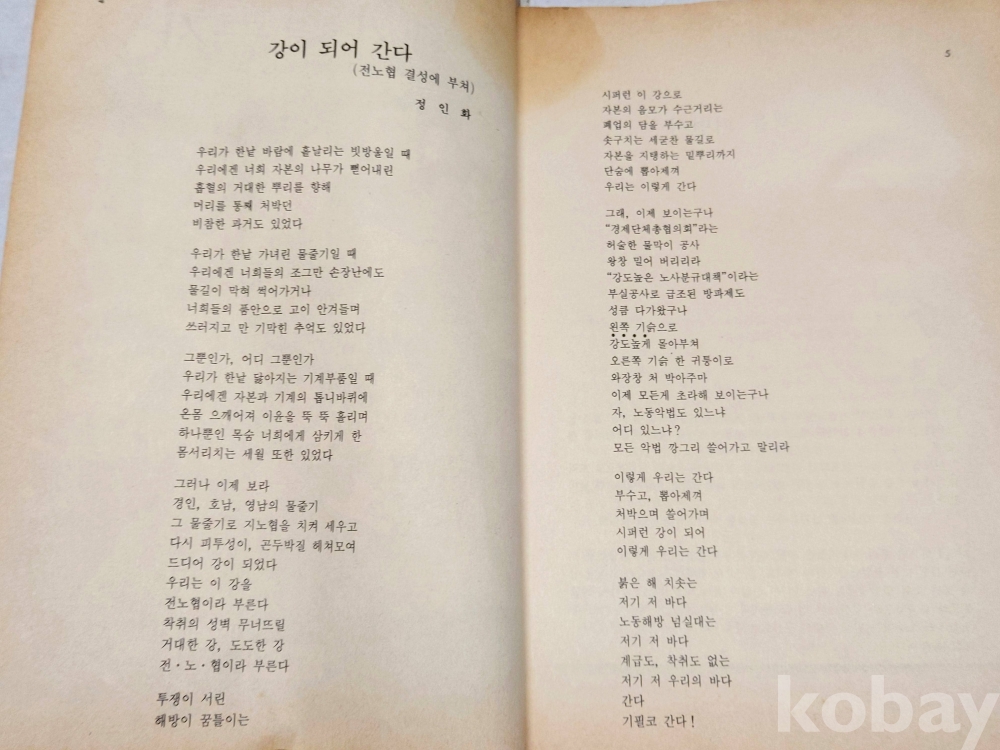 강이 되어 간다
(전노협 결성에 부쳐)
정 인 화
우리가 한낱 바람에 흩날리는 빗방울일 때
우리에겐 너희 자본의 나무가 뻗어내린
흡혈의 거대한 뿌리를 향해
머리를 통째 처박던
비참한 과거도 있었다
우리가 한낱 가녀린 물줄기일 때
우리에겐 너희들의 조그만 손장난에도
물길이 막혀 썩어가거나
너희들의 품안으로 고이 안겨들며
쓰러지고 만 기막힌 추억도 있었다
그뿐인가, 어디 그뿐인가
우리가 한낱 닳아지는 기계부품일 때
우리에겐 자본과 기계의 톱니바퀴에
온몸 으깨어져 이윤을 뚝 뚝 흘리며
하나뿐인 목숨 너희에게 삼키게 한
몸서리치는 세월 또한 있었다
그러나 이제 보라
경인, 호남, 영남의 물줄기
그 물줄기로 지노협을 치켜 세우고
다시 피투성이, 곤두박질 헤쳐모여
드디어 강이 되었다
우리는 이 강을
전노협이라 부른다
착취의 성벽 무너뜨릴
거대한 강, 도도한 강
전·노·협이라 부른다
투쟁이 서린
해방이 꿈틀이는
5
시퍼런 이 강으로
자본의 음모가 수근거리는
폐업의 담을 부수고
솟구치는 세굳찬 물길로
자본을 지탱하는 밑뿌리까지
단숨에 뽑아제껴
우리는 이렇게 간다
그래, 이제 보이는구나
“경제단체총협의회”라는
허술한 물막이 공사
왕창 밀어 버리리라
“강도높은 노사분규대책”이라는
부실공사로 급조된 방파제도
성큼 다가왔구나
왼쪽 기슭으로
강도높게 몰아부쳐
오른쪽 기슭 한 귀퉁이로
와장창 처 박아주마
이제 모든게 초라해 보이는구나
자, 노동악법도 있느냐
어디 있느냐?
모든 악법 깡그리 쓸어가고 말리라
이렇게 우리는 간다
부수고, 뽑아제껴
처박으며 쓸어가며
시퍼런 강이 되어
이렇게 우리는 간다
붉은 해 치솟는
저기 저 바다
노동해방 넘실대는
저기 저 바다
계급도, 착취도 없는
저기 저 우리의 바다
간다
기필코 간다!
kobay